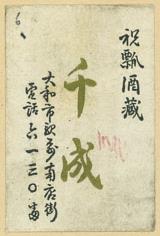 祝瓢酒蔵
千成
大和市駅前南店街
電話六一三〇番